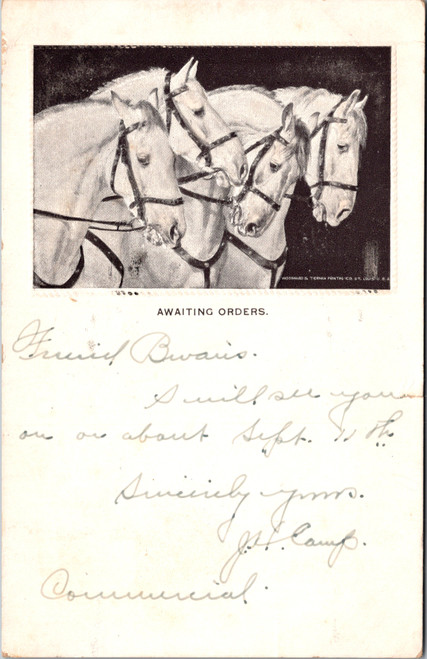 WOODWARD & TIERNAN PRINTING CO. ST. LOUIS U.S.A.
AWAITING ORDERS.
Friend
I will see you
on or about Sept. 11th
Sincerely yours.
J. H. Camp.
Commercial.